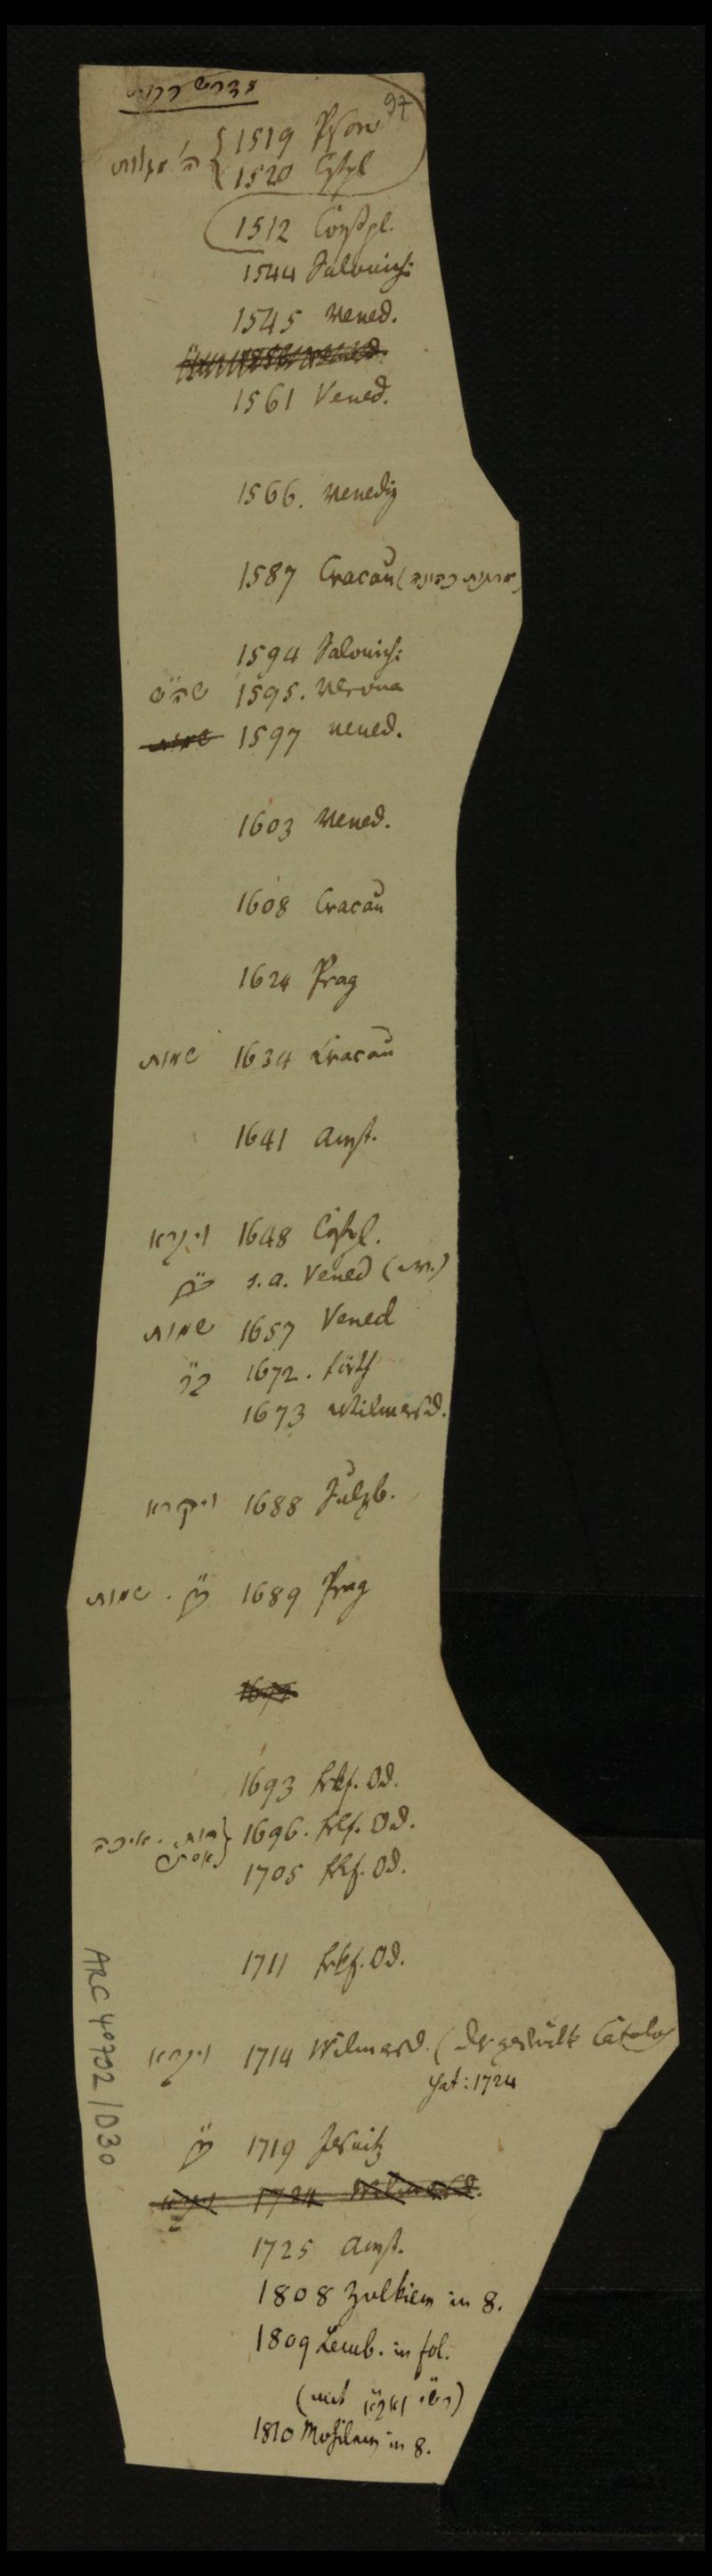 מדרש רבות
97
ה' מגלות { 1519 Pesaro
1520 Cstpl
1512 Constpl.
1544 Salonichi
1545 Vened.
1561 Vened.
1566. Venedig
1587 Cracau (מתנות כהונה)
1594 Salonichi
שה״ש 1595. Verona
שמות 1597 Vened.
1603 Vened.
1608 Cracau
1624 Prag
שמות 1634 Cracau
1641 Amst.
ויקרא 1648 Cstpl.
s. a. Vened
שמות 1657 Vened
1672. Fürth
1673 Wilmersd.
ויקרא 1688 Sulzb.
שמות . 1689 Prag
1693 Frkf. Od.
רות . איכה } 1696. Frkf. Od.
אסתר 1705 Frkf. Od.
1711 Frkf. Od.
ויקרא 1714 Wilmersd. ( Catalog
hat: 1724
1719 Jesnitz
ויקרא 1724 Wilmersd.
1725 Amst.
1808 Zolkiew in 8.
1809 Lemb. in fol.
(mit רש״י )
1810 Mohilew in 8.
ARC 4°792/D30